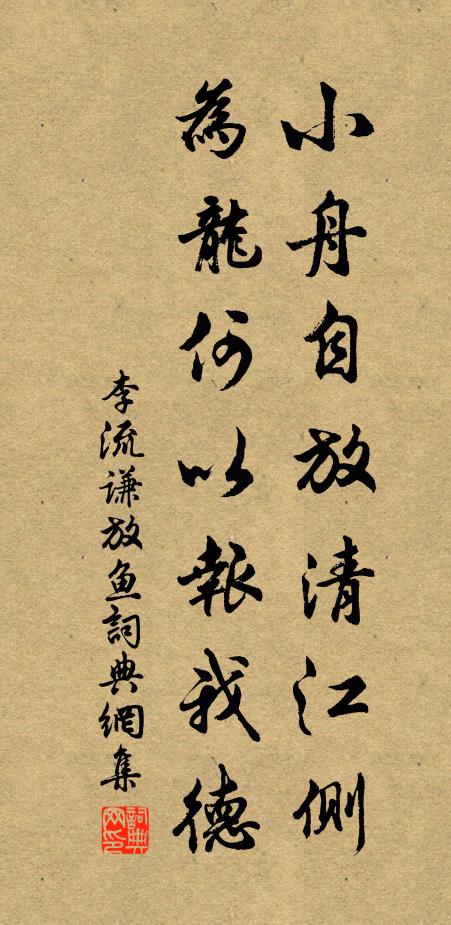 小舟自放清江側
為龍何以報我德
李流谦放鱼詞典網集
詞典网印